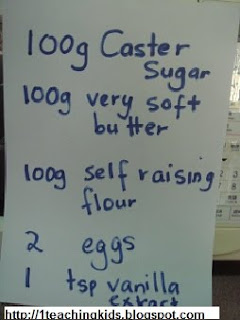 100g Caster
Sugar
100g very soft
butter
100g self raising
flour
2 eggs
1 tsp vanilla
extract
http://1teachingkids.blogspot.com